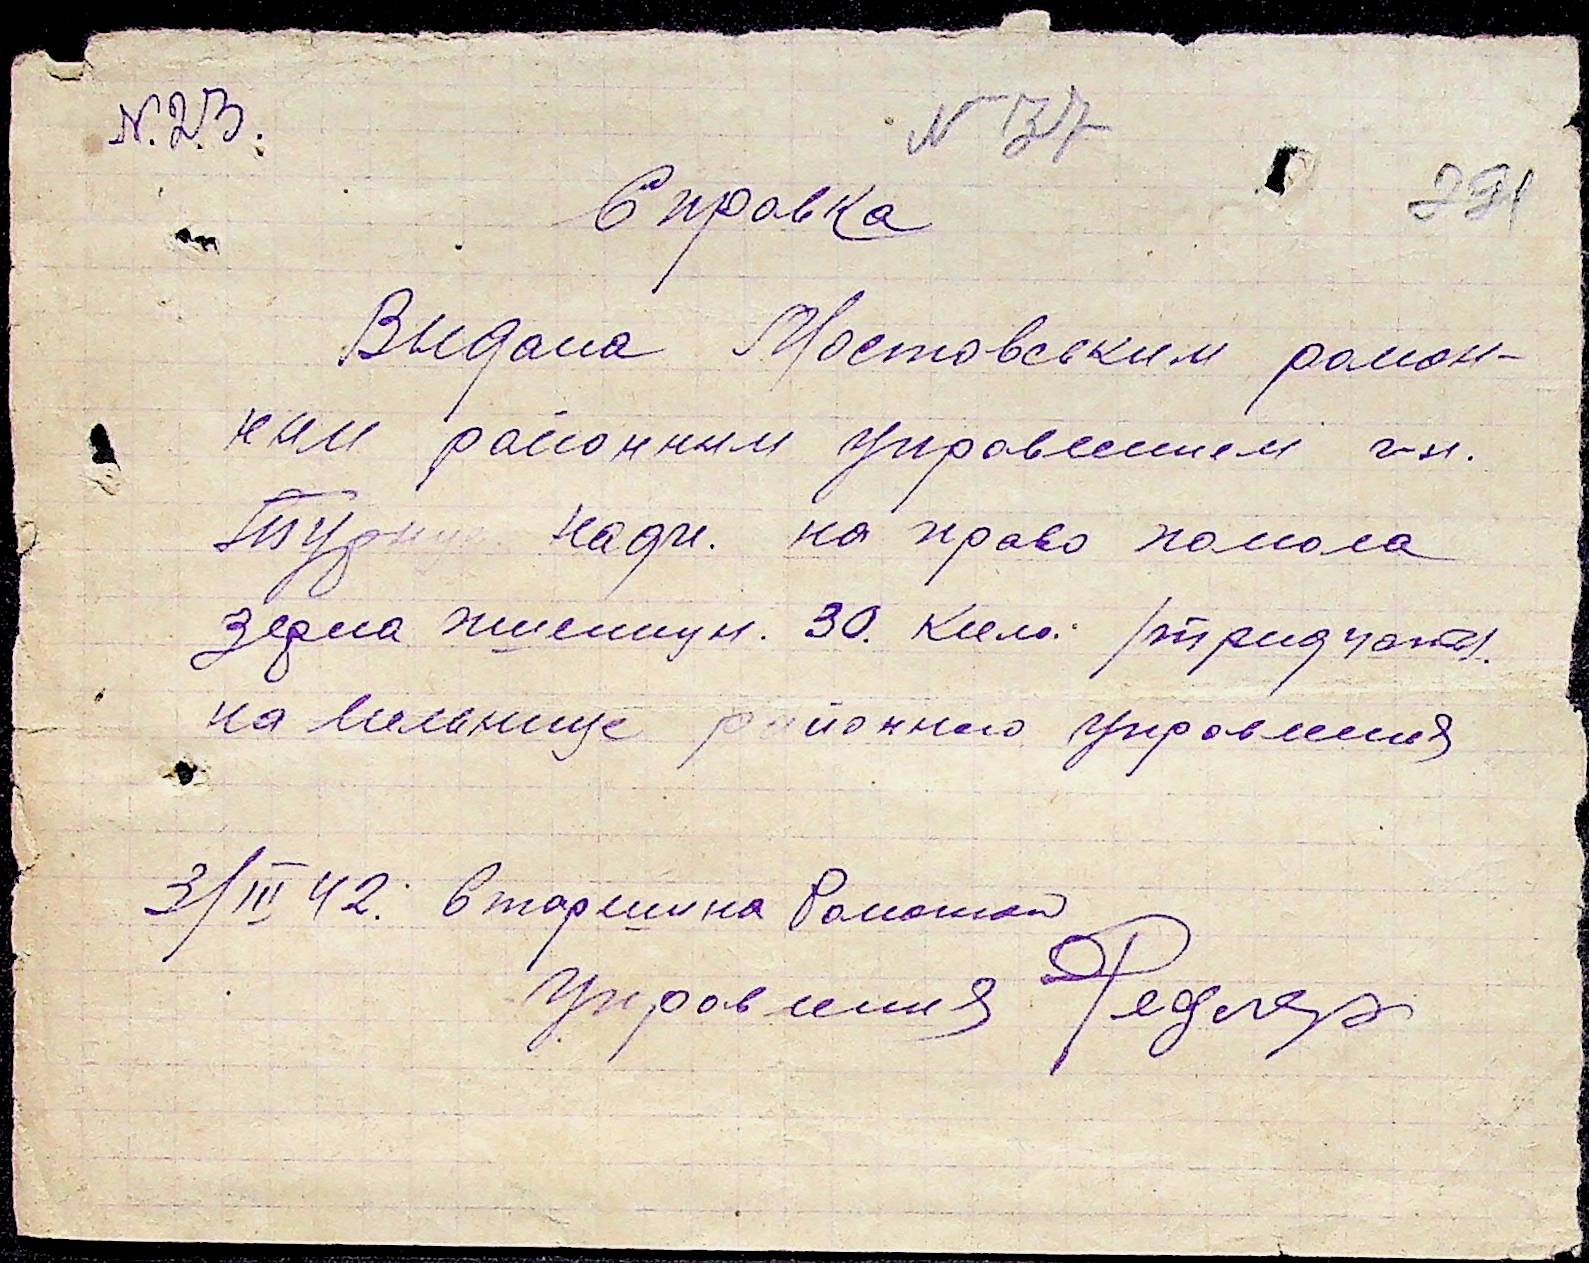 N. 23.
N 37
291
Справка
Выдана Мостовським район-
ным районным управлением г-н.
Надн. на право помола
зерна пшениц н. 30. кило. /тридцать/.
на мельнице районного управления
3/III 42. Старшина Районной
Управления Федляр